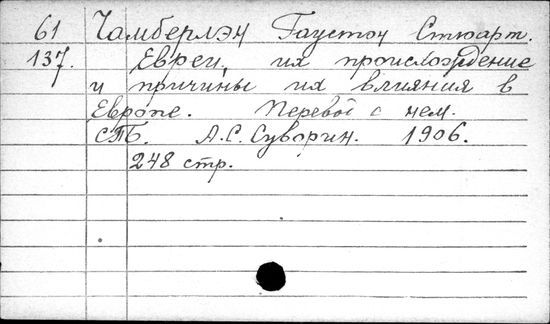 61 Чамберлэн Гаустон Стюарт.
137. Евреи, их происхождение
и причины их влияния в
Европе. Перевод с нем.
СПБ. А.С. Суворин. 1906.
248 стр.